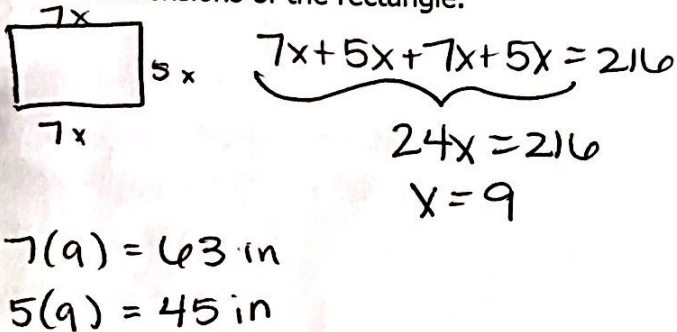 dimensions of the rectangle.
7x
5 x
7x
7x+5x+7x+5x=216
24x=216
x=9
7(9) = 63 in
5(9) = 45 in